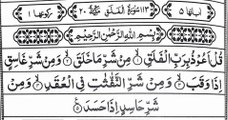 اٰیاتہا ۵ ۱۱۳ سُوْرَةُ الْفَلَقِ مَكِّيَّةٌ ۲۰ رکوعہا ۱
بِسْمِ اللهِ الرَّحْمٰنِ الرَّحِيْمِ
قُلْ اَعُوْذُ بِرَبِّ الْفَلَقِ ۝ مِنْ شَرِّ مَا خَلَقَ ۝ وَمِنْ شَرِّ غَاسِقٍ
اِذَا وَقَبَ ۝ وَمِنْ شَرِّ النَّفّٰثٰتِ فِي الْعُقَدِ ۝ وَمِنْ
شَرِّ حَاسِدٍ اِذَا حَسَدَ ۝